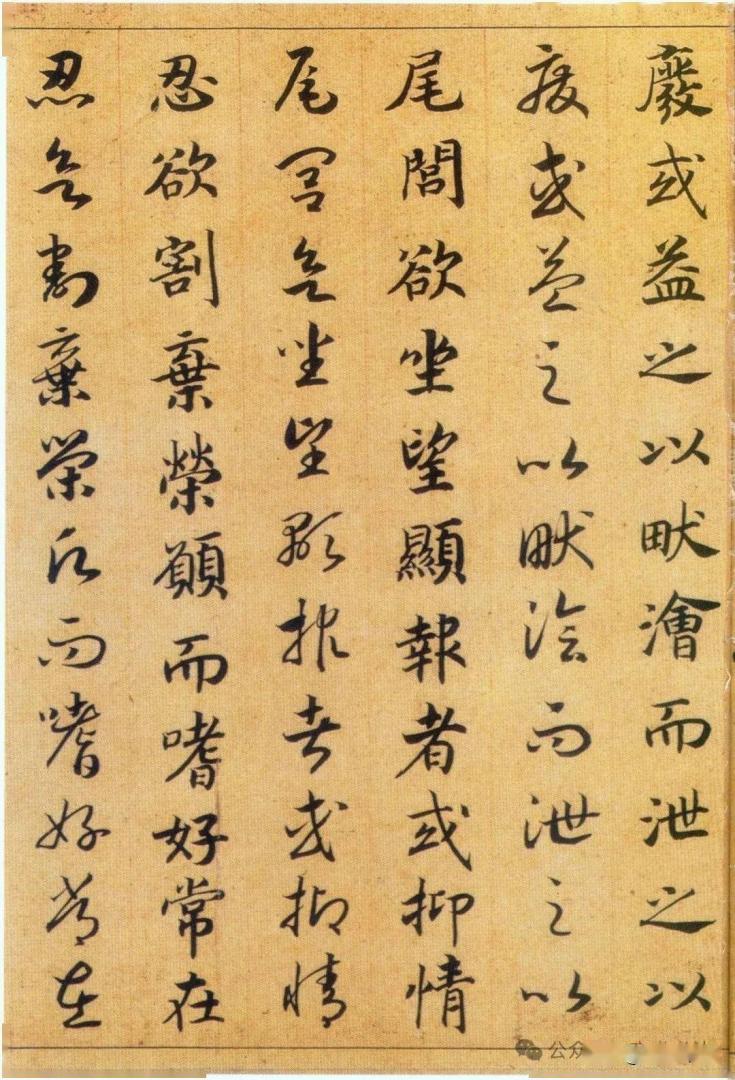 廢或益之以畎澮而泄之以
廢或益之以畎澮而泄之以
尾閭欲坐望顯報者或抑情
尾閭欲坐望顯報者或抑情
忍欲割棄榮願而嗜好常在
忍欲割棄榮願而嗜好常在
公众